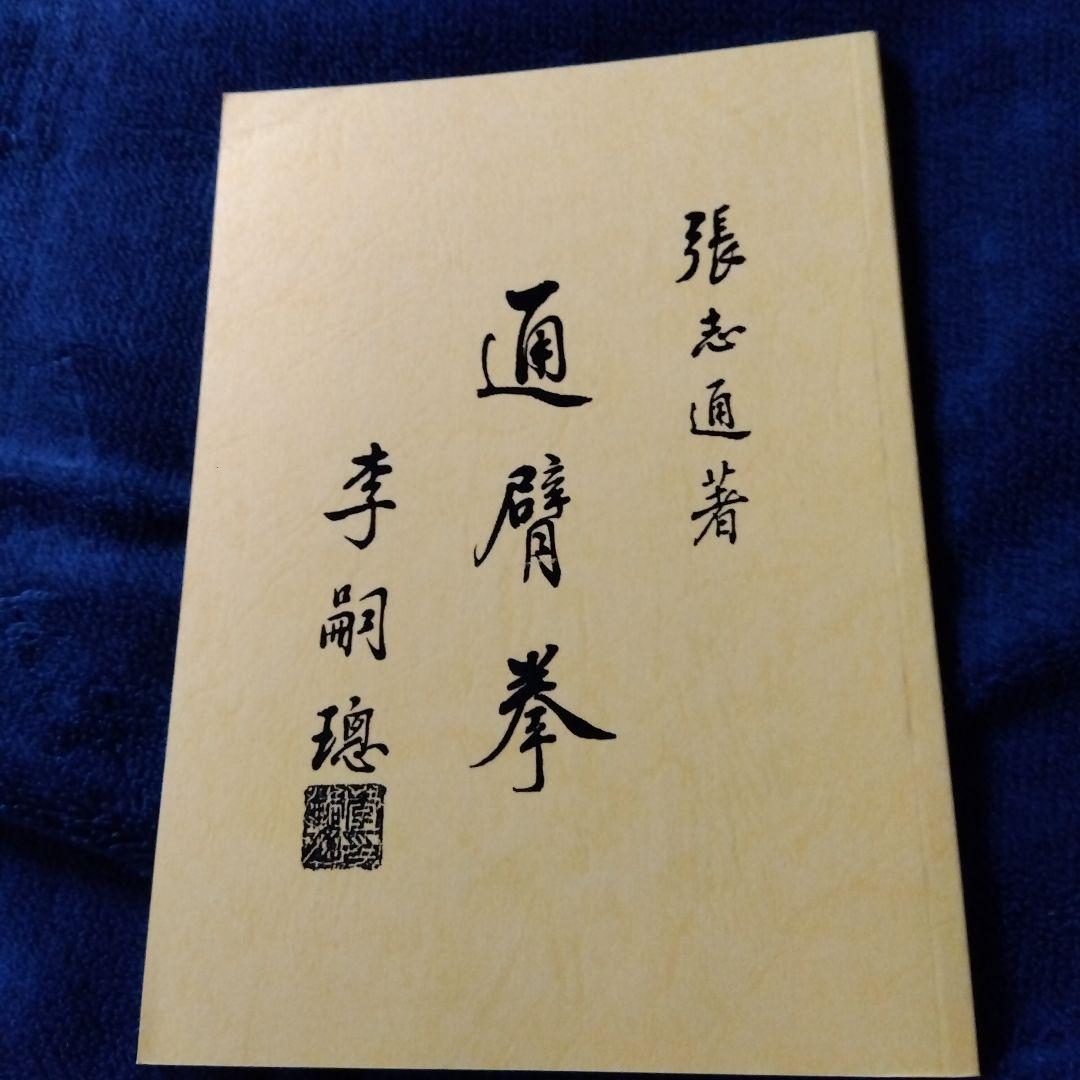 張志通著
通臂拳
李嗣璁